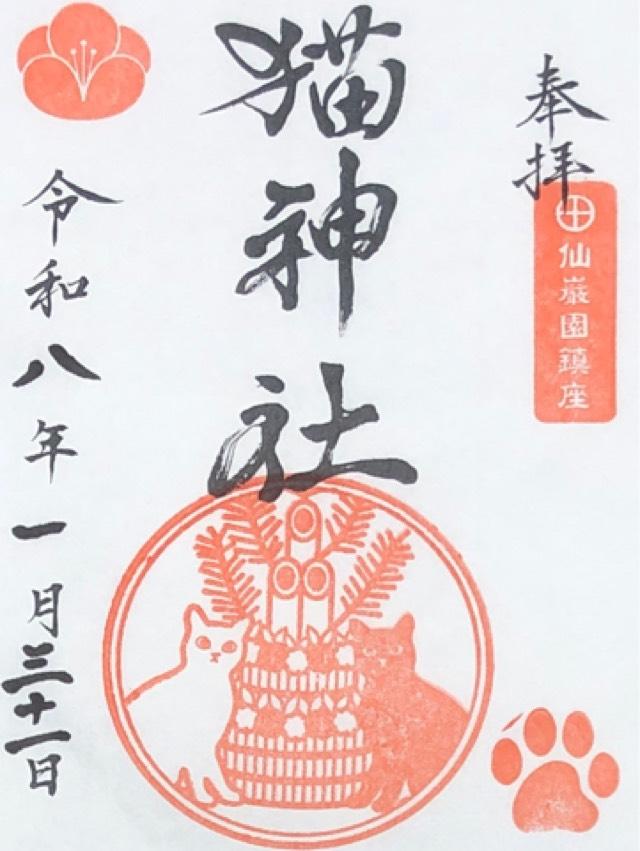 奉拝
仙巌園鎮座
猫神社
令和八年一月三十一日